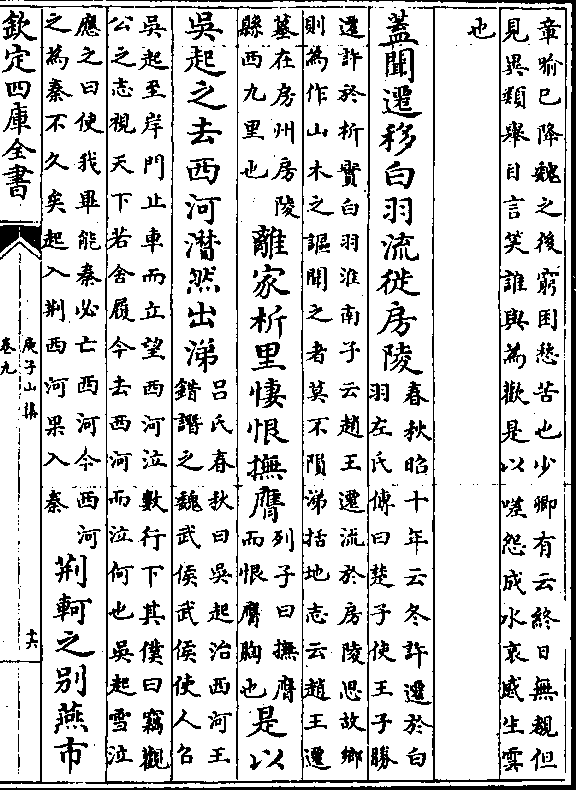 章喻已降魏之後窮困愁苦也少卿有云終日無覩但
見異類舉目言笑誰與為歡是以嗟怨成水哀感生雲
也
蓋聞遷移白羽流徙房陵
春秋昭十年云冬許遷於白
羽左氏傳曰楚子使王子勝
遷許於析實白羽淮南子云趙王遷流於房陵思故鄉
則為作山木之謳聞之者莫不隕涕括地志云趙王遷
墓在房州房陵
縣西九里也
離家析里悽恨撫膺
列子曰撫膺
而恨膺胸也
是以
吳起之去西河潸然出涕
呂氏春秋曰吳起治西河王
錯譖之魏武侯武侯使人召
吳起至岸門止車而立望西河泣數行下其僕曰竊觀
公之志視天下若舍履今去西河而泣何也吳起雪泣
應之曰使我畢能秦必亡西河今西河
之為秦不久矣起入荆西河果入秦
荆軻之别燕市
欽定四庫全書
庾子山集
卷九
十六